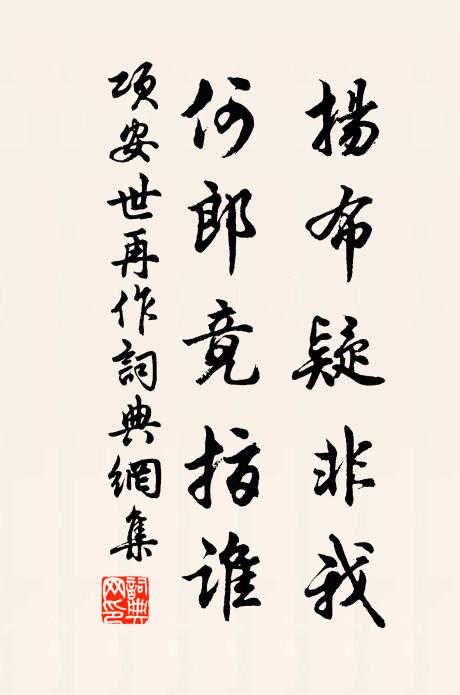 揚布疑非我
何郎竟指誰
項安世再作詞典網集
詞典网印